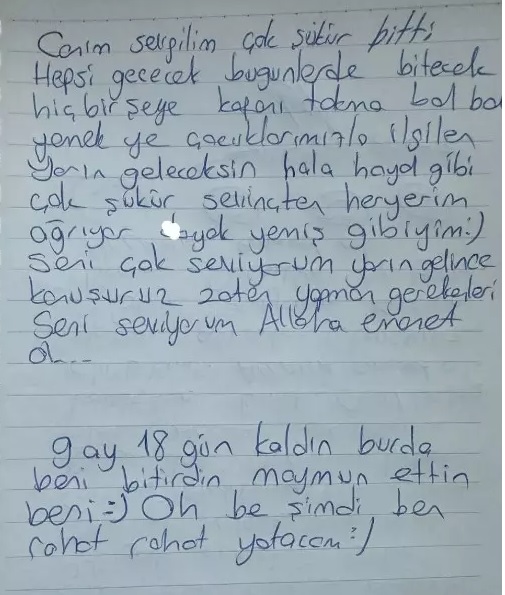 Canım sevgilim çok şükür bitti
Hepsi geçecek bugünlerde bitecek
hiç bir şeye kafanı takma bol bol
yemek ye çocuklarımızla ilgilen
Yarın geleceksin hala hayal gibi
çok şükür sevinçten heryerim
ağrıyor dayak yemiş gibiyim:)
Seni çok seviyorum yarın gelince
konuşuruz zaten yapman gerekenleri
Seni seviyorum Allaha emanet
ol...
9 ay 18 gün kaldın burda
beni bitirdin maymun ettin
beni=) Oh be şimdi ben
rahat rahat yatacam:)